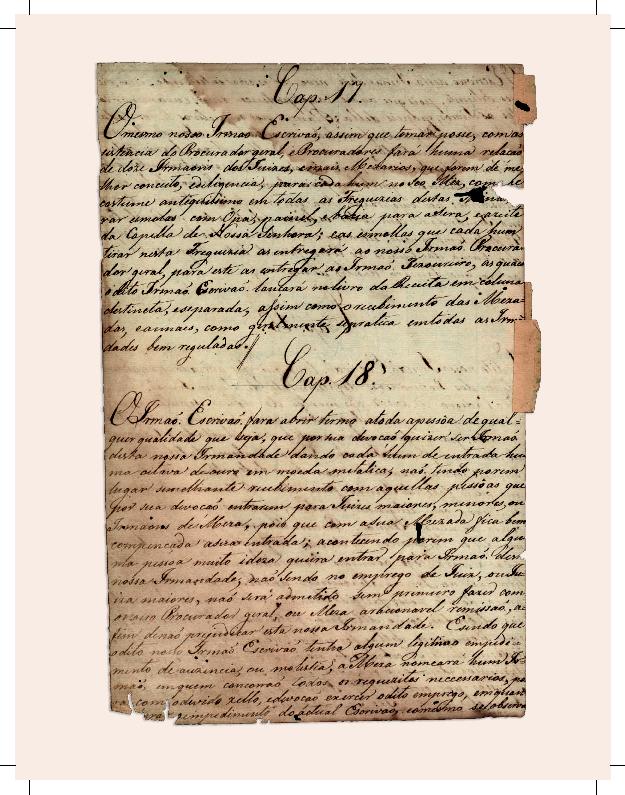 Cap. 17.
O mesmo nosso Irmaõ Escrivaõ, assim que tomar posse, com as
sistencia do Procurador geral, e Procuradores fará huma relaçaõ
de doze Irmaons dos Juizes, e mais Mezarios, que forem de me
lhor conceito, e deligencia, para cada hum no seo Mez, com se
costume antiquissimo em todas as Freguezias destas Minas
rar esmolas com Opa, painel, e bacia para a sera, e azeite
da Capella de Nossa Senhora; e as esmollas que cada hum
tirar nesta Freguezia as entregará ao nosso Irmaõ Procura-
dor geral, para este as entregar ao Irmaõ Tezoureiro, as quaes
o dito Irmaõ Escrivaõ lançará no livro da Receita em coluna
destincta, e separada, assim como o recebimento das Meza-
das, e annaes, como geralmente se pratica em todas as Irm-
dades bem reguladas.
Cap. 18.
O Irmaõ Escrivaõ fara abrir termo a toda a pessôa de qual-
quer qualidade que seja, que por sua devocaõ quizer ser Irmaõ
desta nossa Irmandade dando cada hum de entrada hu
ma oitava de ouro em moeda metalica, naõ tendo porem
lugar semelhante recebimento com aquellas pessôas que
por sua devocaõ entrarem para Juizes maiores, menores, ou
Irmaons de Meza, pois que com a sua Mezada fica bem
compençada a sua entrada; acontecendo porem que algu
ma pessoa muito idoza queira entrar para Irmaõ desta
nossa Irmandade, naõ sendo no emprego de Juiz, ou Ju
iza maiores, naõ será admetido sem primeiro fazer com
o nosso Procurador geral, ou Meza a racionavel remissaõ, a
fim de naõ prejudicar esta nossa Irmandade. E sendo que
o dito nosso Irmaõ Escrivaõ tenha algum legitimo empedi-
mento de auzencia, ou molestia, a Meza nomeará hum Ir-
maõ, em quem concorraõ todos os requezitos neccessarios, pa
ra com o devido zello, e devocaõ exercer o dito emprego, em quan
impedimento do actual Escrivaõ, e o mesmo se observa